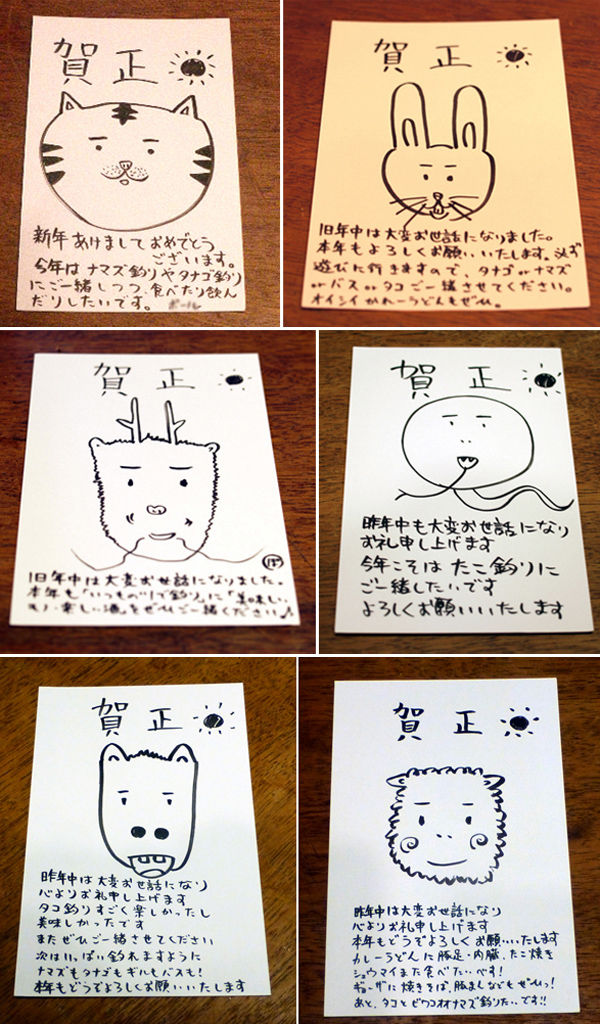 賀 正
新年あけましておめでとう
ございます。
今年はナマズ釣りやタナゴ釣り
にご一緒しつつ、食べたり飲ん
だりしたいです。
賀 正
旧年中は大変お世話になりました。
本年もよろしくお願いいたします。必ず
遊びに行きますので、タナゴorナマズ
orバスorタコご一緒させてください。
オイシイかれーうどんもぜひ。
賀 正
旧年中は大変お世話になりました。
本年も「いつもの川で釣り」に「美味しい
もの・楽しい酒」をぜひご一緒ください♪
賀 正
昨年中も大変お世話になり
お礼申し上げます
今年こそはたこ釣りに
ご一緒したいです
よろしくお願いいたします
賀 正
昨年中は大変お世話になり
心よりお礼申し上げます
タコ釣りすごく楽しかったし
美味しかったです
またぜひご一緒させてください
次はいっぱい釣れますように
ナマズもタナゴもギルもバスも!
本年もどうぞよろしくお願いいたします
賀 正
昨年中は大変お世話になり
心よりお礼申し上げます
本年もどうぞよろしくお願いいたします
カレーうどんに豚足・内臓、たこ焼き
シュウマイまた食べたいべす!
ギョーザに焼きそば、豚まんなどもぜひっ!
あと、タコとビワコオオナマズ釣りたいです!!